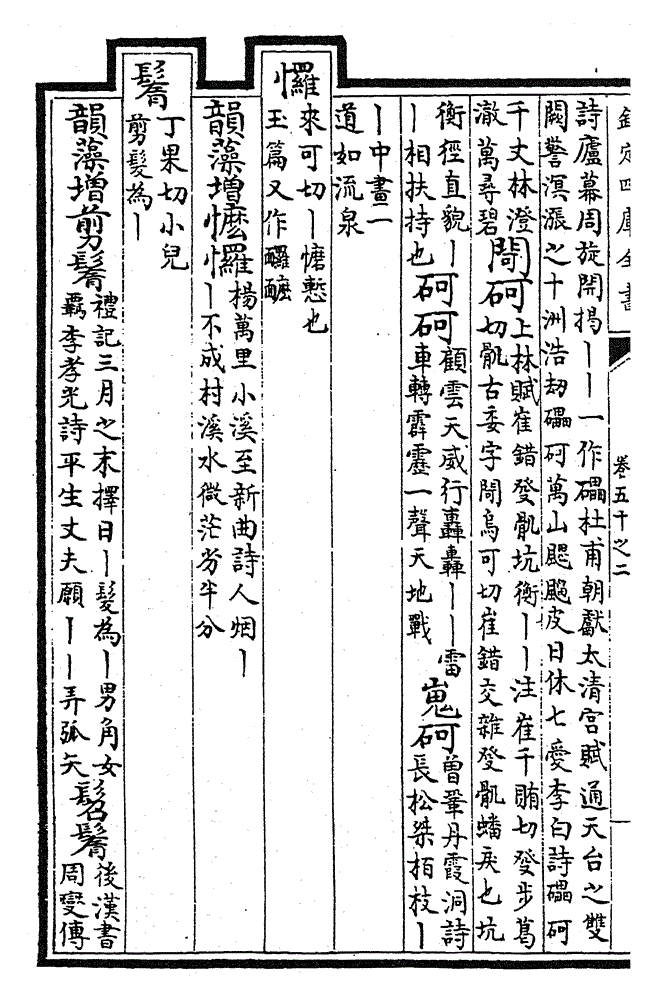 欽定四庫全書
卷五十之二
詩廬幕周旋開揭丨丨一作礧杜甫朝獻太清宮賦通天台之雙
闕警溟漲之十洲浩劫礧砢萬山颼飀皮日休七愛李白詩礧砢
千丈林澄
澈萬尋碧
閜砢
上林賦崔錯癹骩坑衡丨丨注崔千賄切癹步葛
切骩古委字閜烏可切崔錯交雜癹骩蟠戾也坑
衡徑直貌丨
丨相扶持也
砢砢
顧雲天威行轟轟丨丨雷
車轉霹靂一聲天地戰
嵬砢
曾鞏丹霞洞詩
長松桀栢枝丨
丨中畫二
道如流泉
㦬
來可切丨㦄慙也
玉篇又作𨣚䤍
韻藻增
㦄㦬
楊萬里小溪至新曲詩人烟丨
丨不成村溪水微茫劣半分
鬌
丁果切小兒
剪髮為丨
韻藻增
剪鬌
禮記三月之末擇日丨髮為丨男角女
羈李孝光詩平生丈夫願丨丨弄弧矢
髫鬌
後漢書
周燮傳